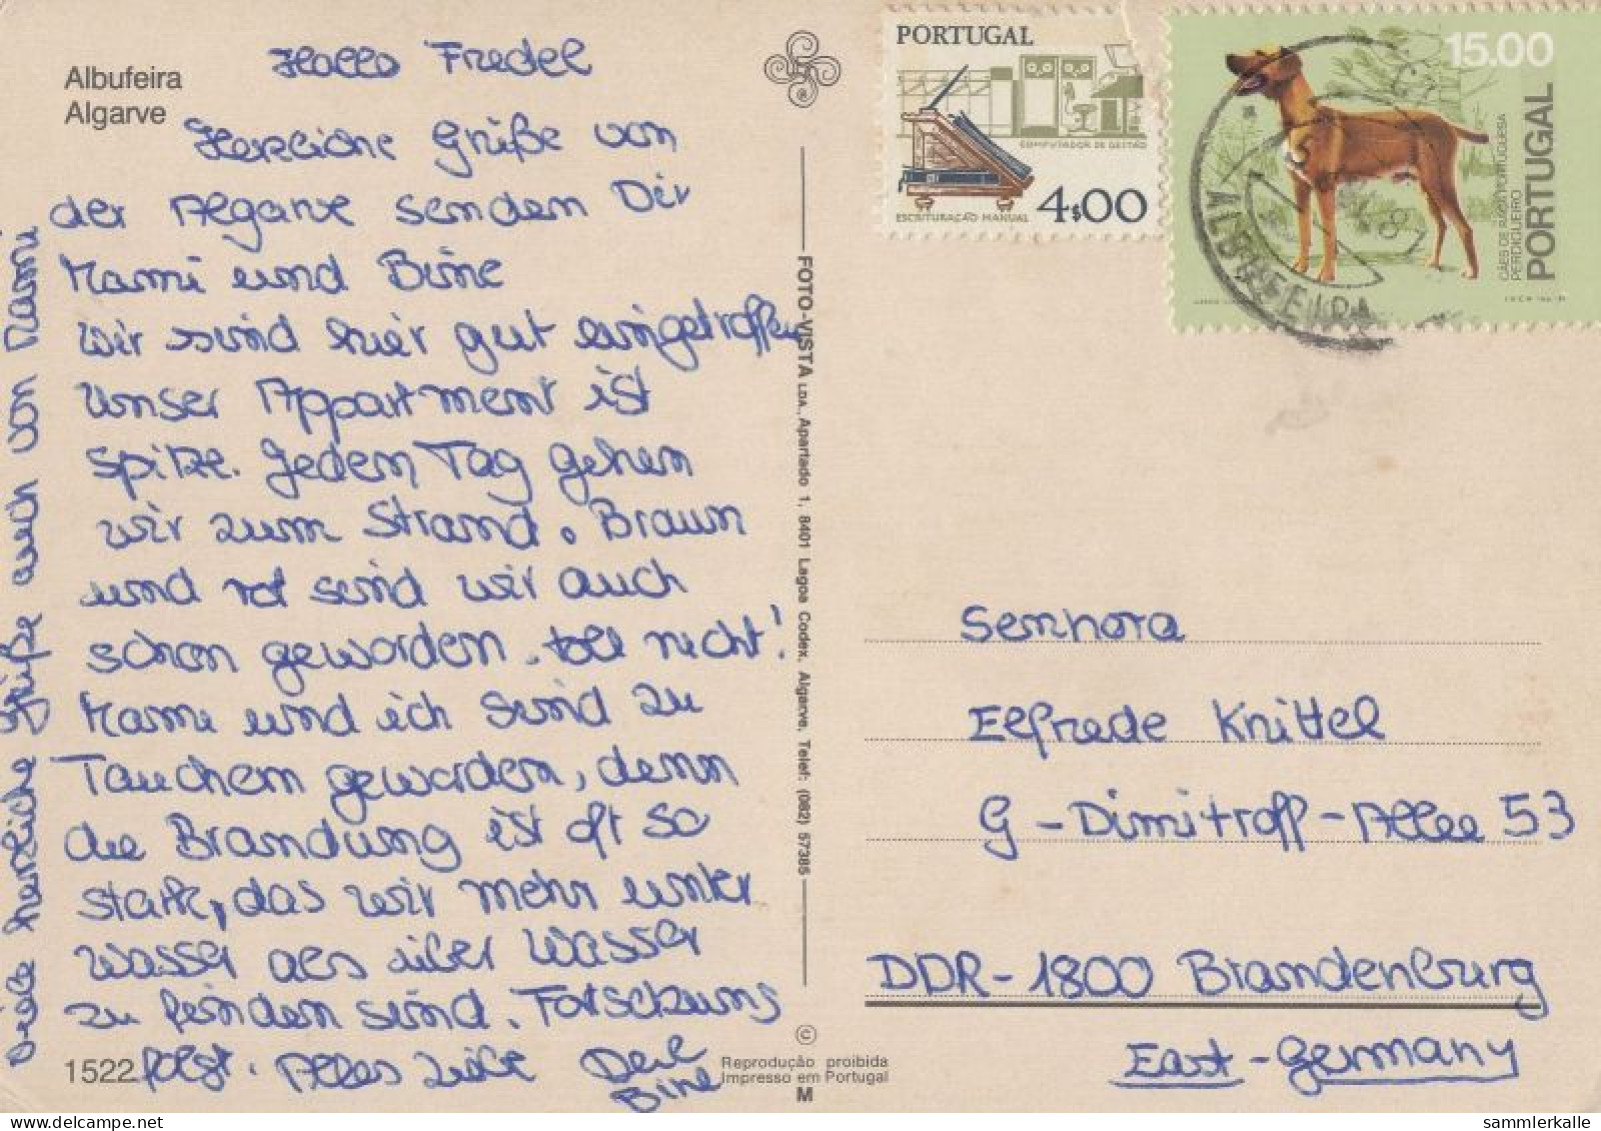 Albufeira
Algarve
Hallo Fredel
Herzliche Grüße von
der Algarve senden Dir
Mami und Bine
Wir sind hier gut eingetroffen
Unser Appartment ist
spitze. Jeden Tag gehen
wir zum Strand. Braun
und rot sind wir auch
schon geworden. toll nicht!
Mami und ich sind zu
Tauchern geworden, denn
die Brandung ist oft so
stark, das wir mehr unter
Wasser als über Wasser
zu finden sind. Fortsetzung
folgt. Alles Liebe Deine
Bine
viele herzliche Grüße auch von Mami
1522
FOTO-VISTA LDA., Apartado 1, 8401 Lagoa Codex, Algarve, Telef: (082) 57385
©
Reprodução proibida
Impresso em Portugal
M
PORTUGAL
COMPUTADOR DE GESTÃO
ESCRITURAÇÃO MANUAL
4$00
15.00
CÃES DE RAÇA PORTUGUESA
PERDIGUEIRO
PORTUGAL
ALBUFEIRA
Senhora
Elfriede Knittel
G-Dimitroff-Allee 53
DDR-1800 Brandenburg
East-Germany
sammlerkalle